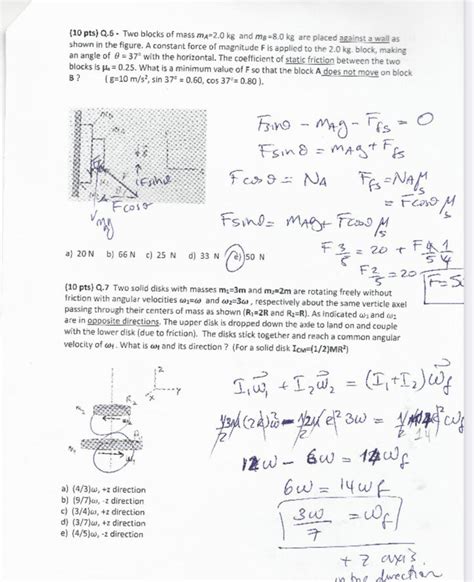 (10 pts) Q.6 - Two blocks of mass mA=2.0 kg and mB=8.0 kg are placed against a wall as
shown in the figure. A constant force of magnitude F is applied to the 2.0 kg. block, making
an angle of θ = 37° with the horizontal. The coefficient of static friction between the two
blocks is μs = 0.25. What is a minimum value of F so that the block A does not move on block
B ? ( g=10 m/s², sin 37° = 0.60, cos 37°= 0.80 ).
Fsinθ - mAg - Ffs = 0
Fsinθ = mAg + Ffs
Fcosθ = NA Ffs = NAμs
= Fcosθ μs
Fsinθ = mAg + Fcosθ μs
F 3/5 = 20 + F 4/5 1/4
F 2/5 = 20
Fsinθ
Fcosθ
mg
a) 20 N b) 66 N c) 25 N d) 33 N e) 50 N
(10 pts) Q.7 Two solid disks with masses m1=3m and m2=2m are rotating freely without
friction with angular velocities ω1=ω and ω2=3ω, respectively about the same verticle axel
passing through their centers of mass as shown (R1=2R and R2=R). As indicated ω1 and ω2
are in opposite directions. The upper disk is dropped down the axle to land on and couple
with the lower disk (due to friction). The disks stick together and reach a common angular
velocity of ωf. What is ωf and its direction ? (For a solid disk ICM=(1/2)MR²)
I1ω1 + I2ω2 = (I1+I2)ωf
12ω - 6ω = 14ωf
6ω = 14ωf
3ω/7 = ωf
+z axis
in the direction
z
y
x
R2
a) (4/3)ω, +z direction
b) (9/7)ω, -z direction
c) (3/4)ω, +z direction
d) (3/7)ω, +z direction
e) (4/5)ω, -z direction